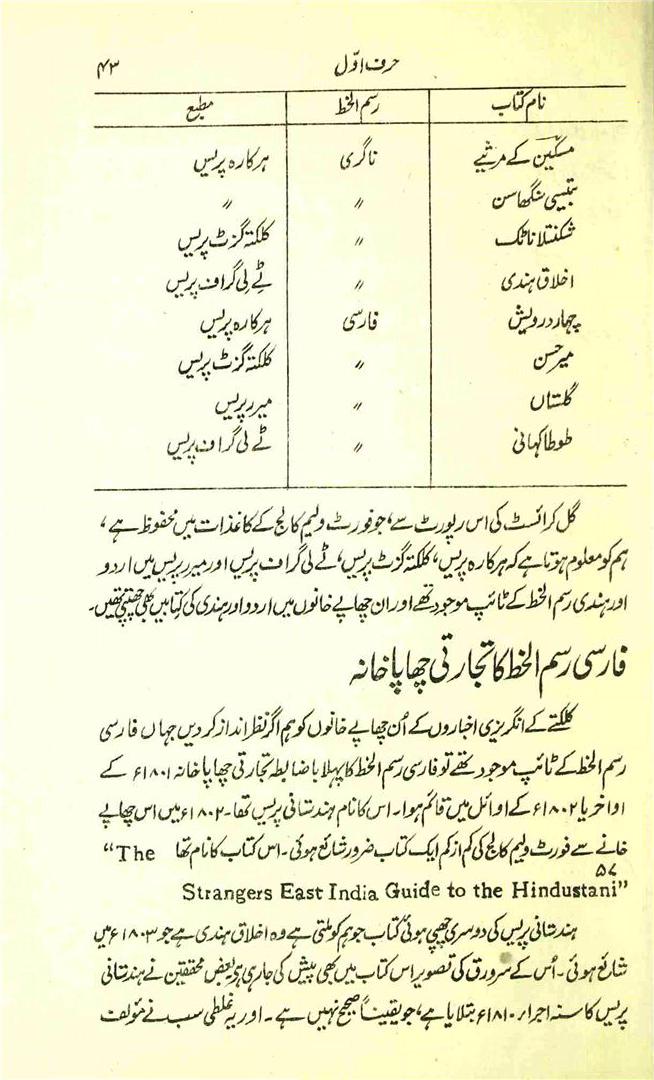 حرف اوّل ۴۳
نام کتاب رسم الخط مطبع
مسکین کے مرثیے ناگری ہرکارہ پریس
بتیسی سنگھاسن 〃 〃
شکنتلا ناٹک 〃 کلکتہ گزٹ پریس
اخلاق ہندی 〃 ٹے لی گراف پریس
چہار درویش فارسی ہرکارہ پریس
میر حسن 〃 کلکتہ گزٹ پریس
گلستاں 〃 میرر پریس
طوطا کہانی 〃 ٹے لی گراف پریس
گل کرائسٹ کی اس رپورٹ سے، جو فورٹ ولیم کالج کے کاغذات میں محفوظ ہے،
ہم کو معلوم ہوتا ہے کہ ہرکارہ پریس، کلکتہ گزٹ پریس، ٹے لی گراف پریس اور میرر پریس میں اردو
اور ہندی رسم الخط کے ٹائپ موجود تھے اور ان چھاپے خانوں میں اردو اور ہندی کی کتابیں بھی چھپتی تھیں۔
فارسی رسم الخط کا تجارتی چھاپا خانہ
کلکتے کے انگریزی اخباروں کے اُن چھاپے خانوں کو ہم اگر نظر انداز کر دیں جہاں فارسی
رسم الخط کے ٹائپ موجود تھے تو فارسی رسم الخط کا پہلا باضابطہ تجارتی چھاپا خانہ ۱۸۰۱ء کے
اواخر یا ۱۸۰۲ء کے اوائل میں قائم ہوا۔ اس کا نام ہندستانی پریس تھا۔ ۱۸۰۲ء میں اس چھاپے
خانے سے فورٹ ولیم کالج کی کم از کم ایک کتاب ضرور شائع ہوئی۔ اس کتاب کا نام تھا "The
۵۷
Strangers East India Guide to the Hindustani"
ہندستانی پریس کی دوسری چھپی ہوئی کتاب جو ہم کو ملتی ہے وہ اخلاق ہندی ہے جو ۱۸۰۳ء میں
شائع ہوئی۔ اُس کے سرورق کی تصویر اس کتاب میں بھی پیش کی جا رہی ہے۔ بعض محققین نے ہندستانی
پریس کا سنہ اجراء ۱۸۱۰ء بتلایا ہے، جو یقیناً صحیح نہیں ہے۔ اور یہ غلطی سب نے مؤلف